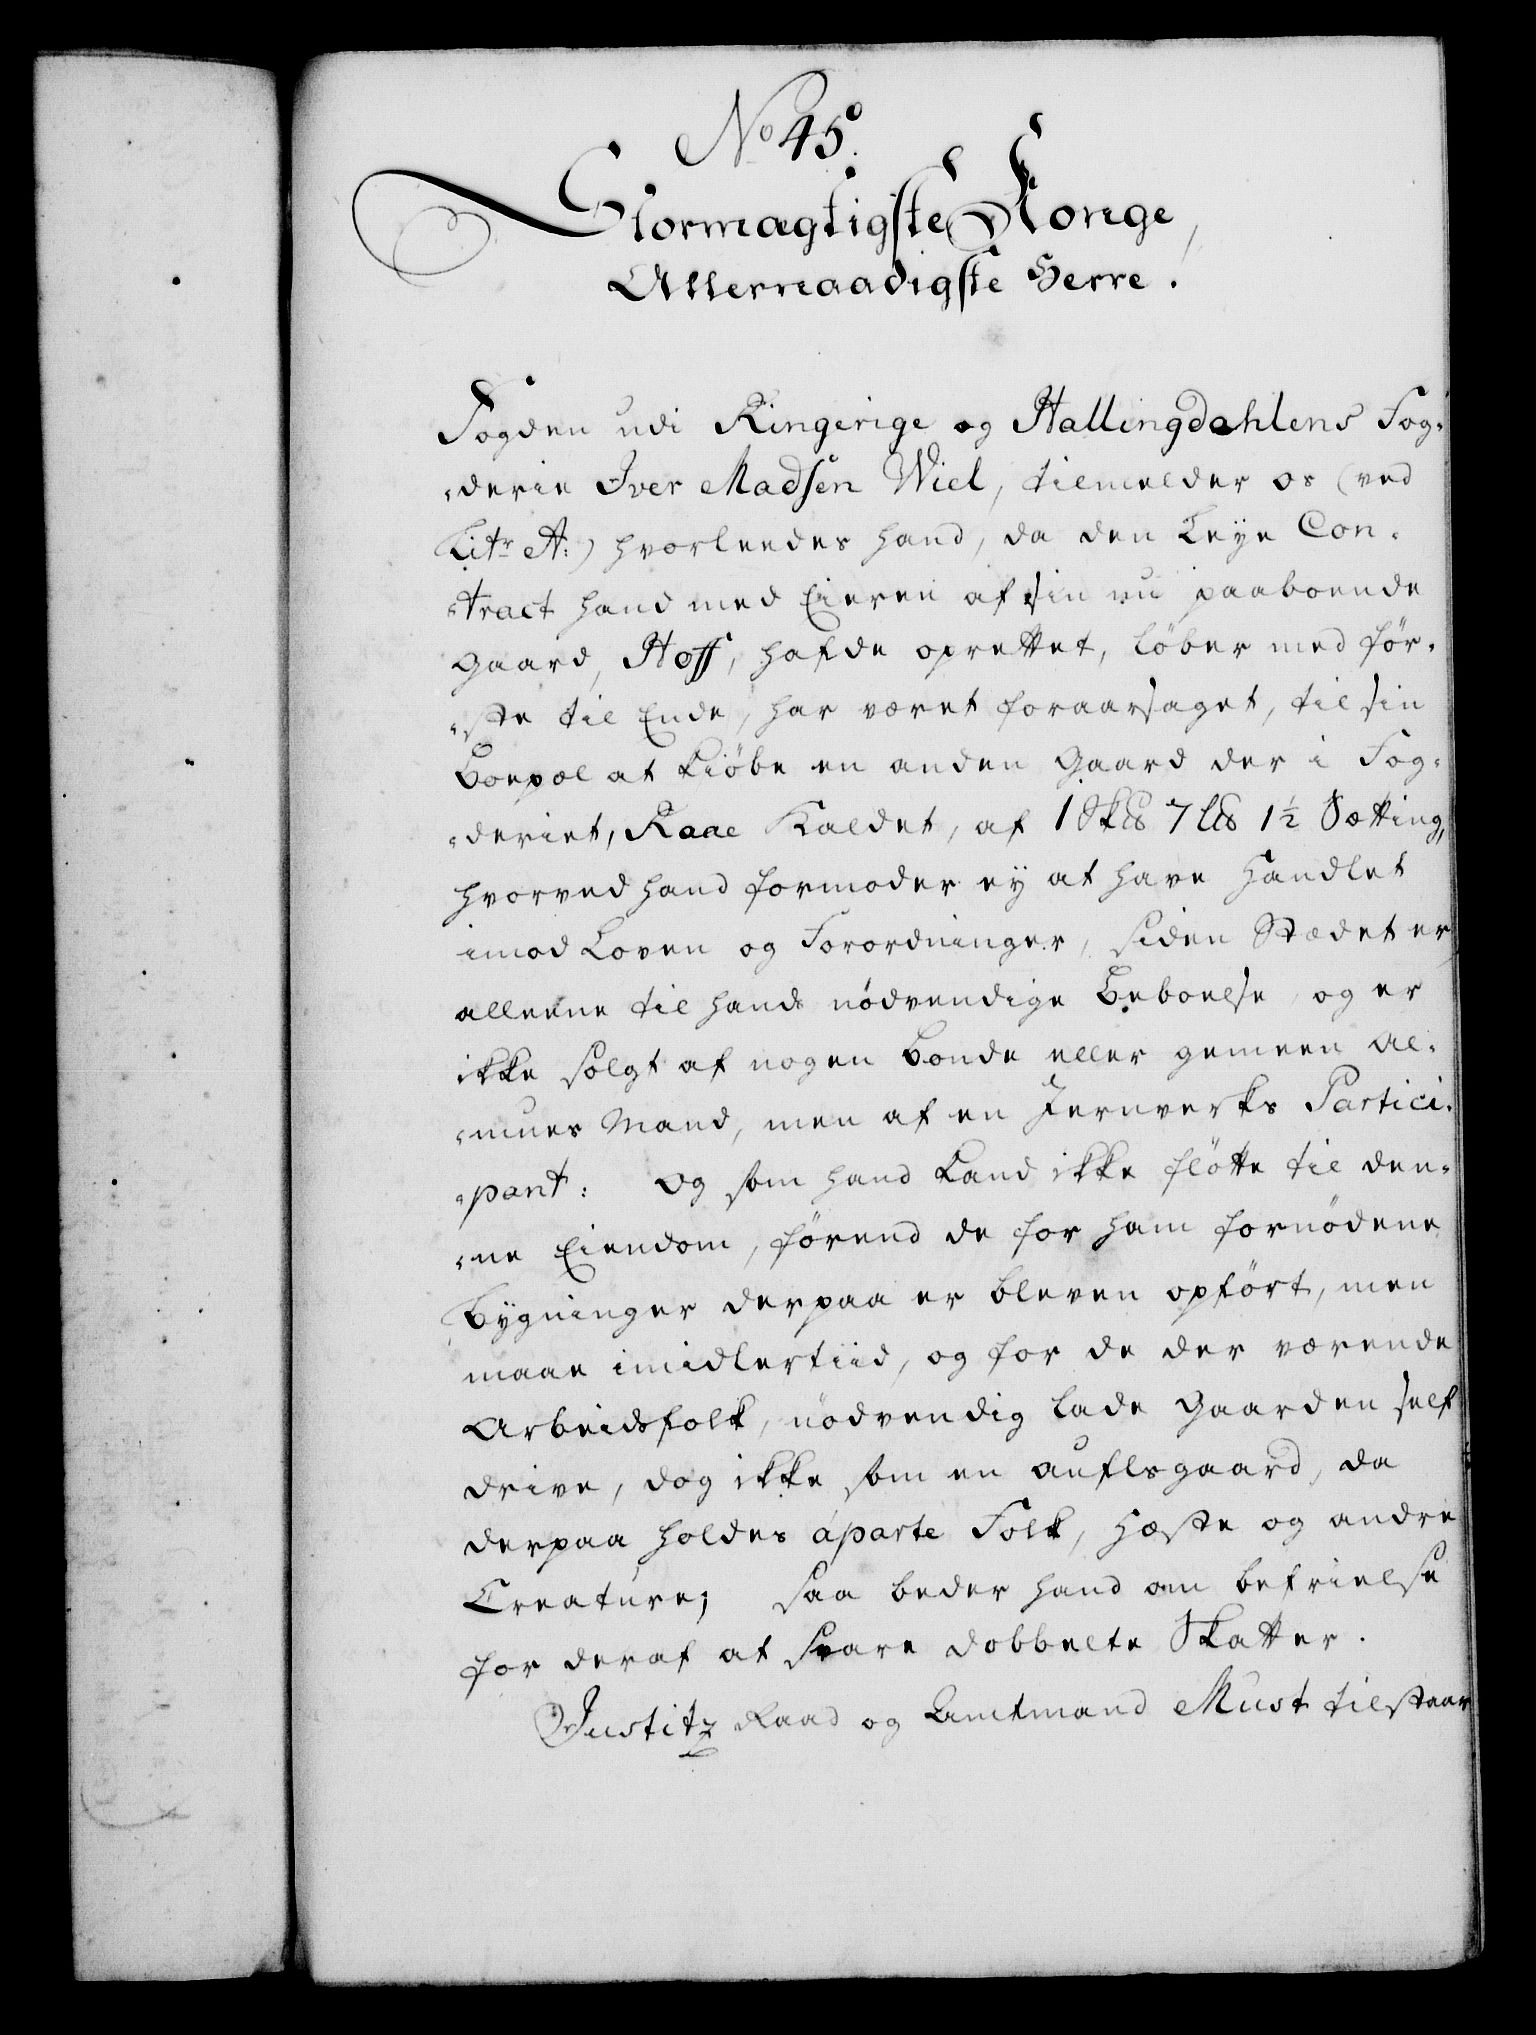 No 45.
Stormægtigste Konge,
Allernaadigste Herre.
Fogden udi Ringerige og Hallingdahlens Fog-
-derie Iver Madsen Wiel, tilmelder os (ved
Litr A:) hvorleedes hand, da den Leye Con-
-tract hand med Eieren af sin nu paaboende
Gaard, Hoff, hafde oprettet, löber med før-
-ste til Ende, har været foraarsaget, til sin
Boepæl at kiöbe en anden Gaard der i Fog-
-deriet, Raae kaldet, af 1 Sk℔ 7 L℔ 1½ Sætting,
hvorved hand formoder ey at have handlet
imod Loven og Forordninger, siden Stædet er
alleene til hands nödvendige Beboelse, og er
ikke solgt af nogen Bonde eller gemeen Al-
-mues Mand, men af en Jernverks Partici-
-pant: Og som hand kand ikke flötte til den-
-ne Eiendom, förend de for ham fornödene
Bygninger derpaa er bleven opfört, men
maae imidlertiid, og for de der værende
Arbeidsfolk, nödvendig lade Gaarden self
drive, dog ikke som en auflsgaard, da
derpaa holdes áparte Folk, Hæste og andre
Creature; saa beder hand om befrielse
for deraf at svare dobbelte Skatter.
Justitz Raad og Amtmand Must tilstaar